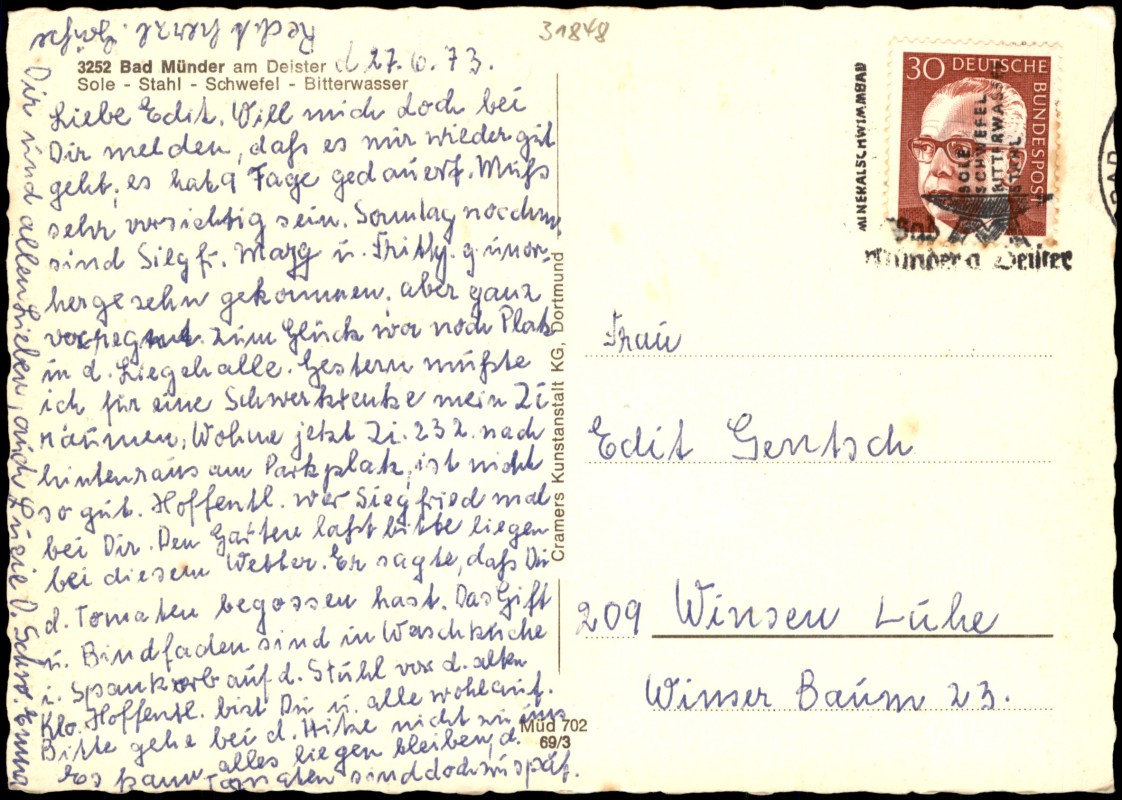 31848
3252 Bad Münder am Deister
Sole - Stahl - Schwefel - Bitterwasser
d 27.6.73.
Liebe Edit. Will mich doch bei
Dir melden, dafs es mir wieder gut
geht, es hat 9 Tage gedauert. Mufs
sehr vorsichtig sein. Sonntag nachm.
sind Siegfr. Marg u. Fritz
hergesehn gekommen. aber ganz
zum Glück war noch Platz
in d. Liegehalle. Gestern mufste
ich für eine Schwerkranke mein Zi
räumen, Wohne jetzt Zi. 232. nach
hintenraus am Parkplatz, ist nicht
so gut. Hoffentl. war Siegfried mal
bei Dir. Den Garten lafst bitte liegen
bei diesem Wetter. Er sagte, dafs Du
d. Tomaten begossen hast. Das Gift
u. Bindfaden sind in Waschküche
i. Spankorb auf d. Stuhl vor d. alten
Klo. Hoffentl. bist Du u. alle wohlauf.
Bitte gehe bei d. Hitze nicht zu uns
alles liegen bleiben, d.
Es kann Tomaten sind doch zu spät.
Recht herzl. Grüfse
Dir und allen Lieben, auch Luzie D. Schw. Emma
Cramers Kunstanstalt KG, Dortmund
Müd 702
69/3
30 DEUTSCHE
BUNDESPOST
MINERALSCHWIMMBAD
SOLE
SCHWEFEL
BITTERWASSER
STAHL
Bad
Münder a. Deister
BAD
Frau
Edit Gentsch
209 Winsen Luhe
Winser Baum 23.